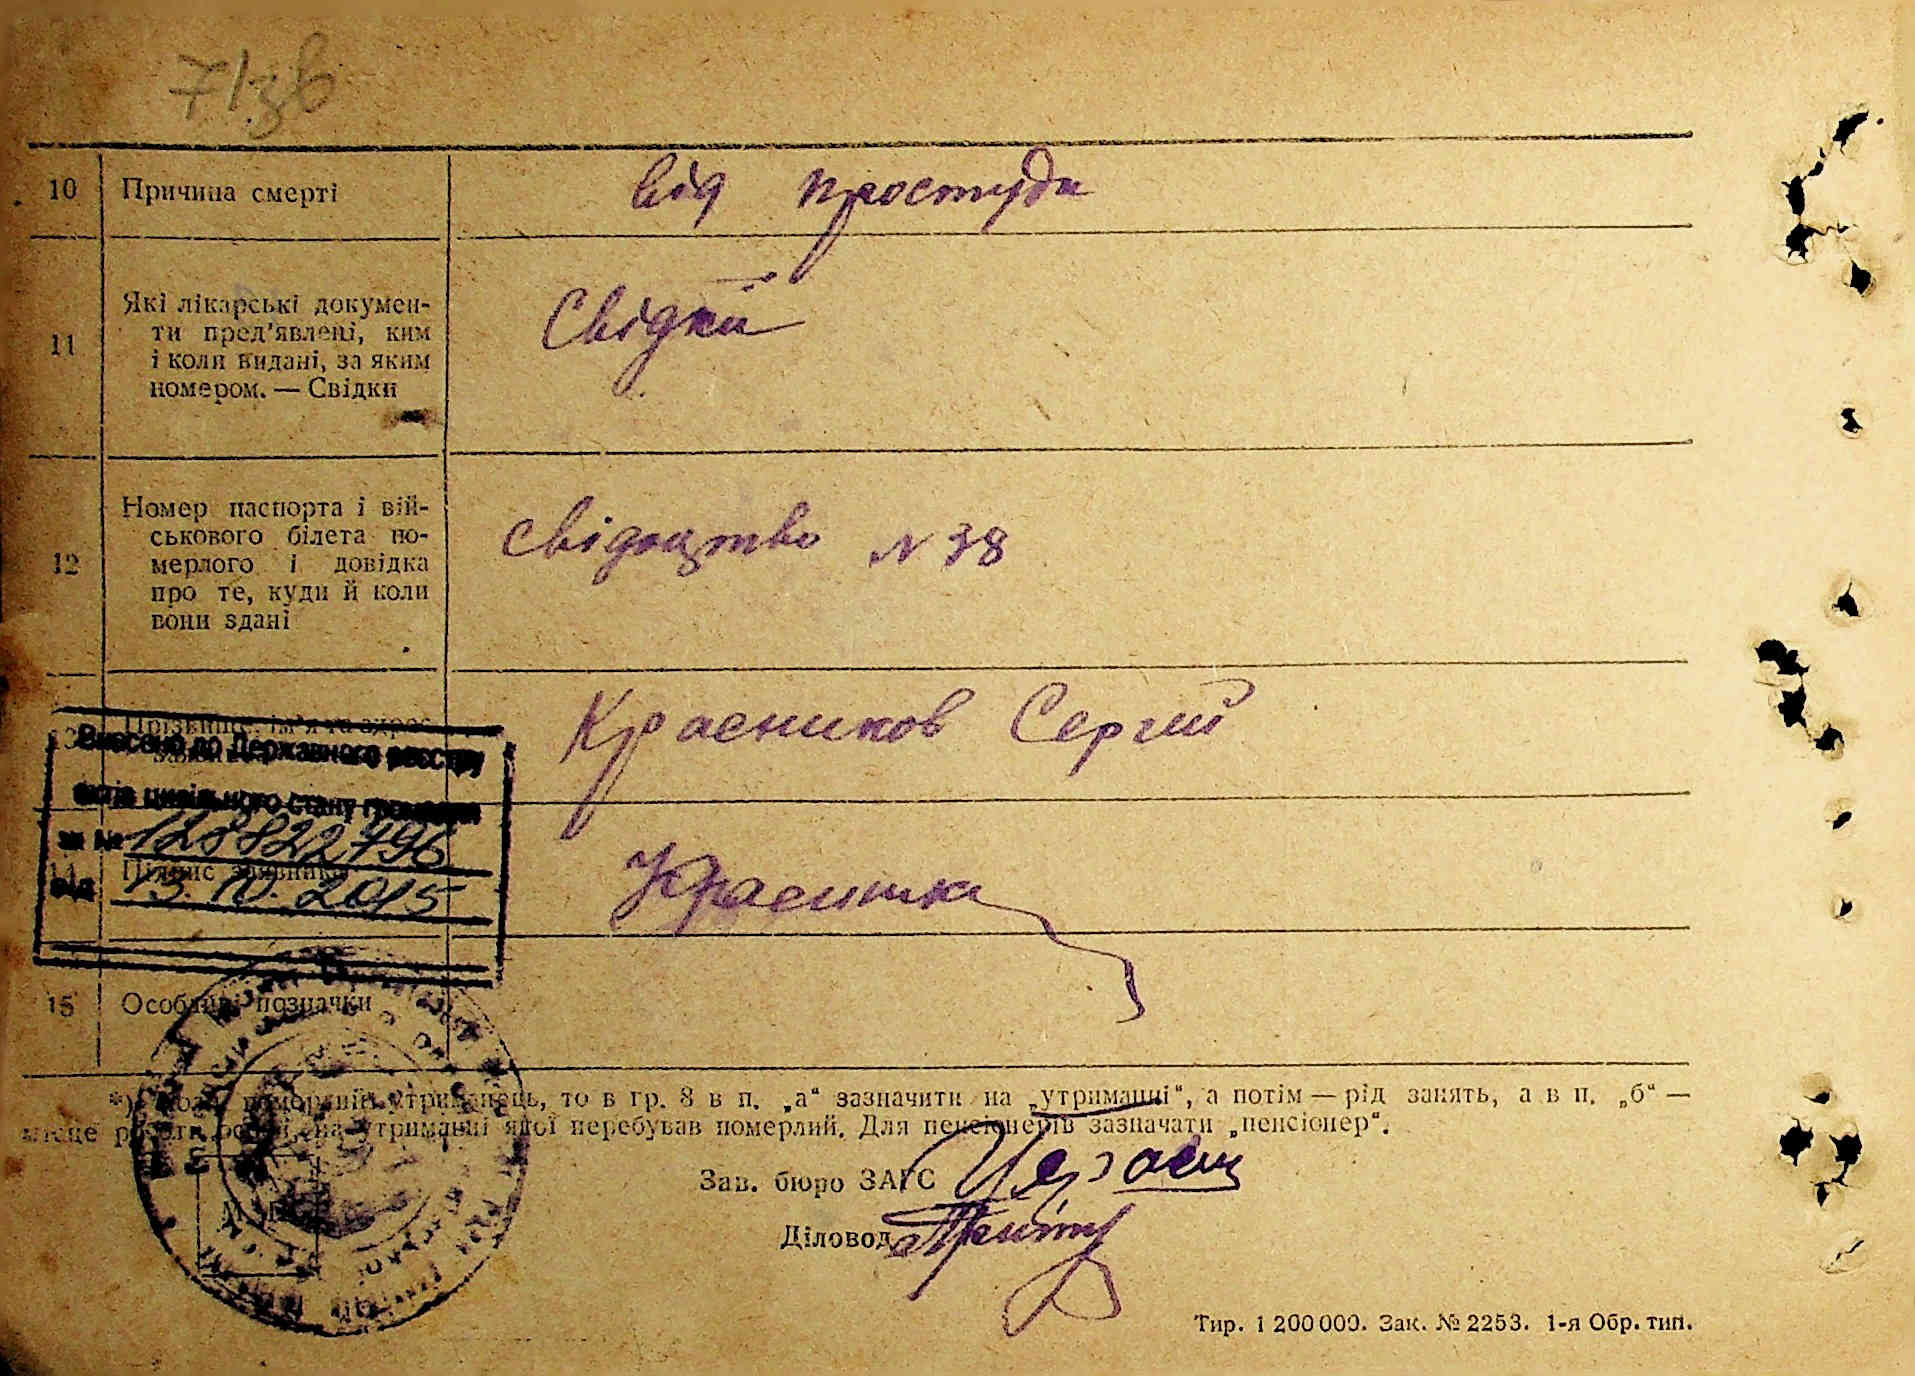 71зв
10 Причина смерті від простуди
11 Які лікарські докумен-
ти пред’явлені, ким
і коли видані, за яким
номером. — Свідки
Свідки
12 Номер паспорта і вій-
ськового білета по-
мерлого і довідка
про те, куди й коли
вони здані
свідоцтво N 38
13 Прізвище, ім’я та адрес
Красников Сергій
Внесено до Державного реєстру
актів цивільного стану громадян
за № 128822796
від 13. 10. 2015
14 Підпис заявника
15 Особливі позначки
*) Коли померлий утриманець, то в гр. 8 в п. „а“ зазначити на „утриманні“, а потім — рід занять, а в п. „б“ —
місце роботи особи, на утриманні якої перебував померлий. Для пенсіонерів зазначати „пенсіонер“.
Зав. бюро ЗАГС
Діловод
Тир. 1 200 000. Зак. № 2253. 1-я Обр. тип.